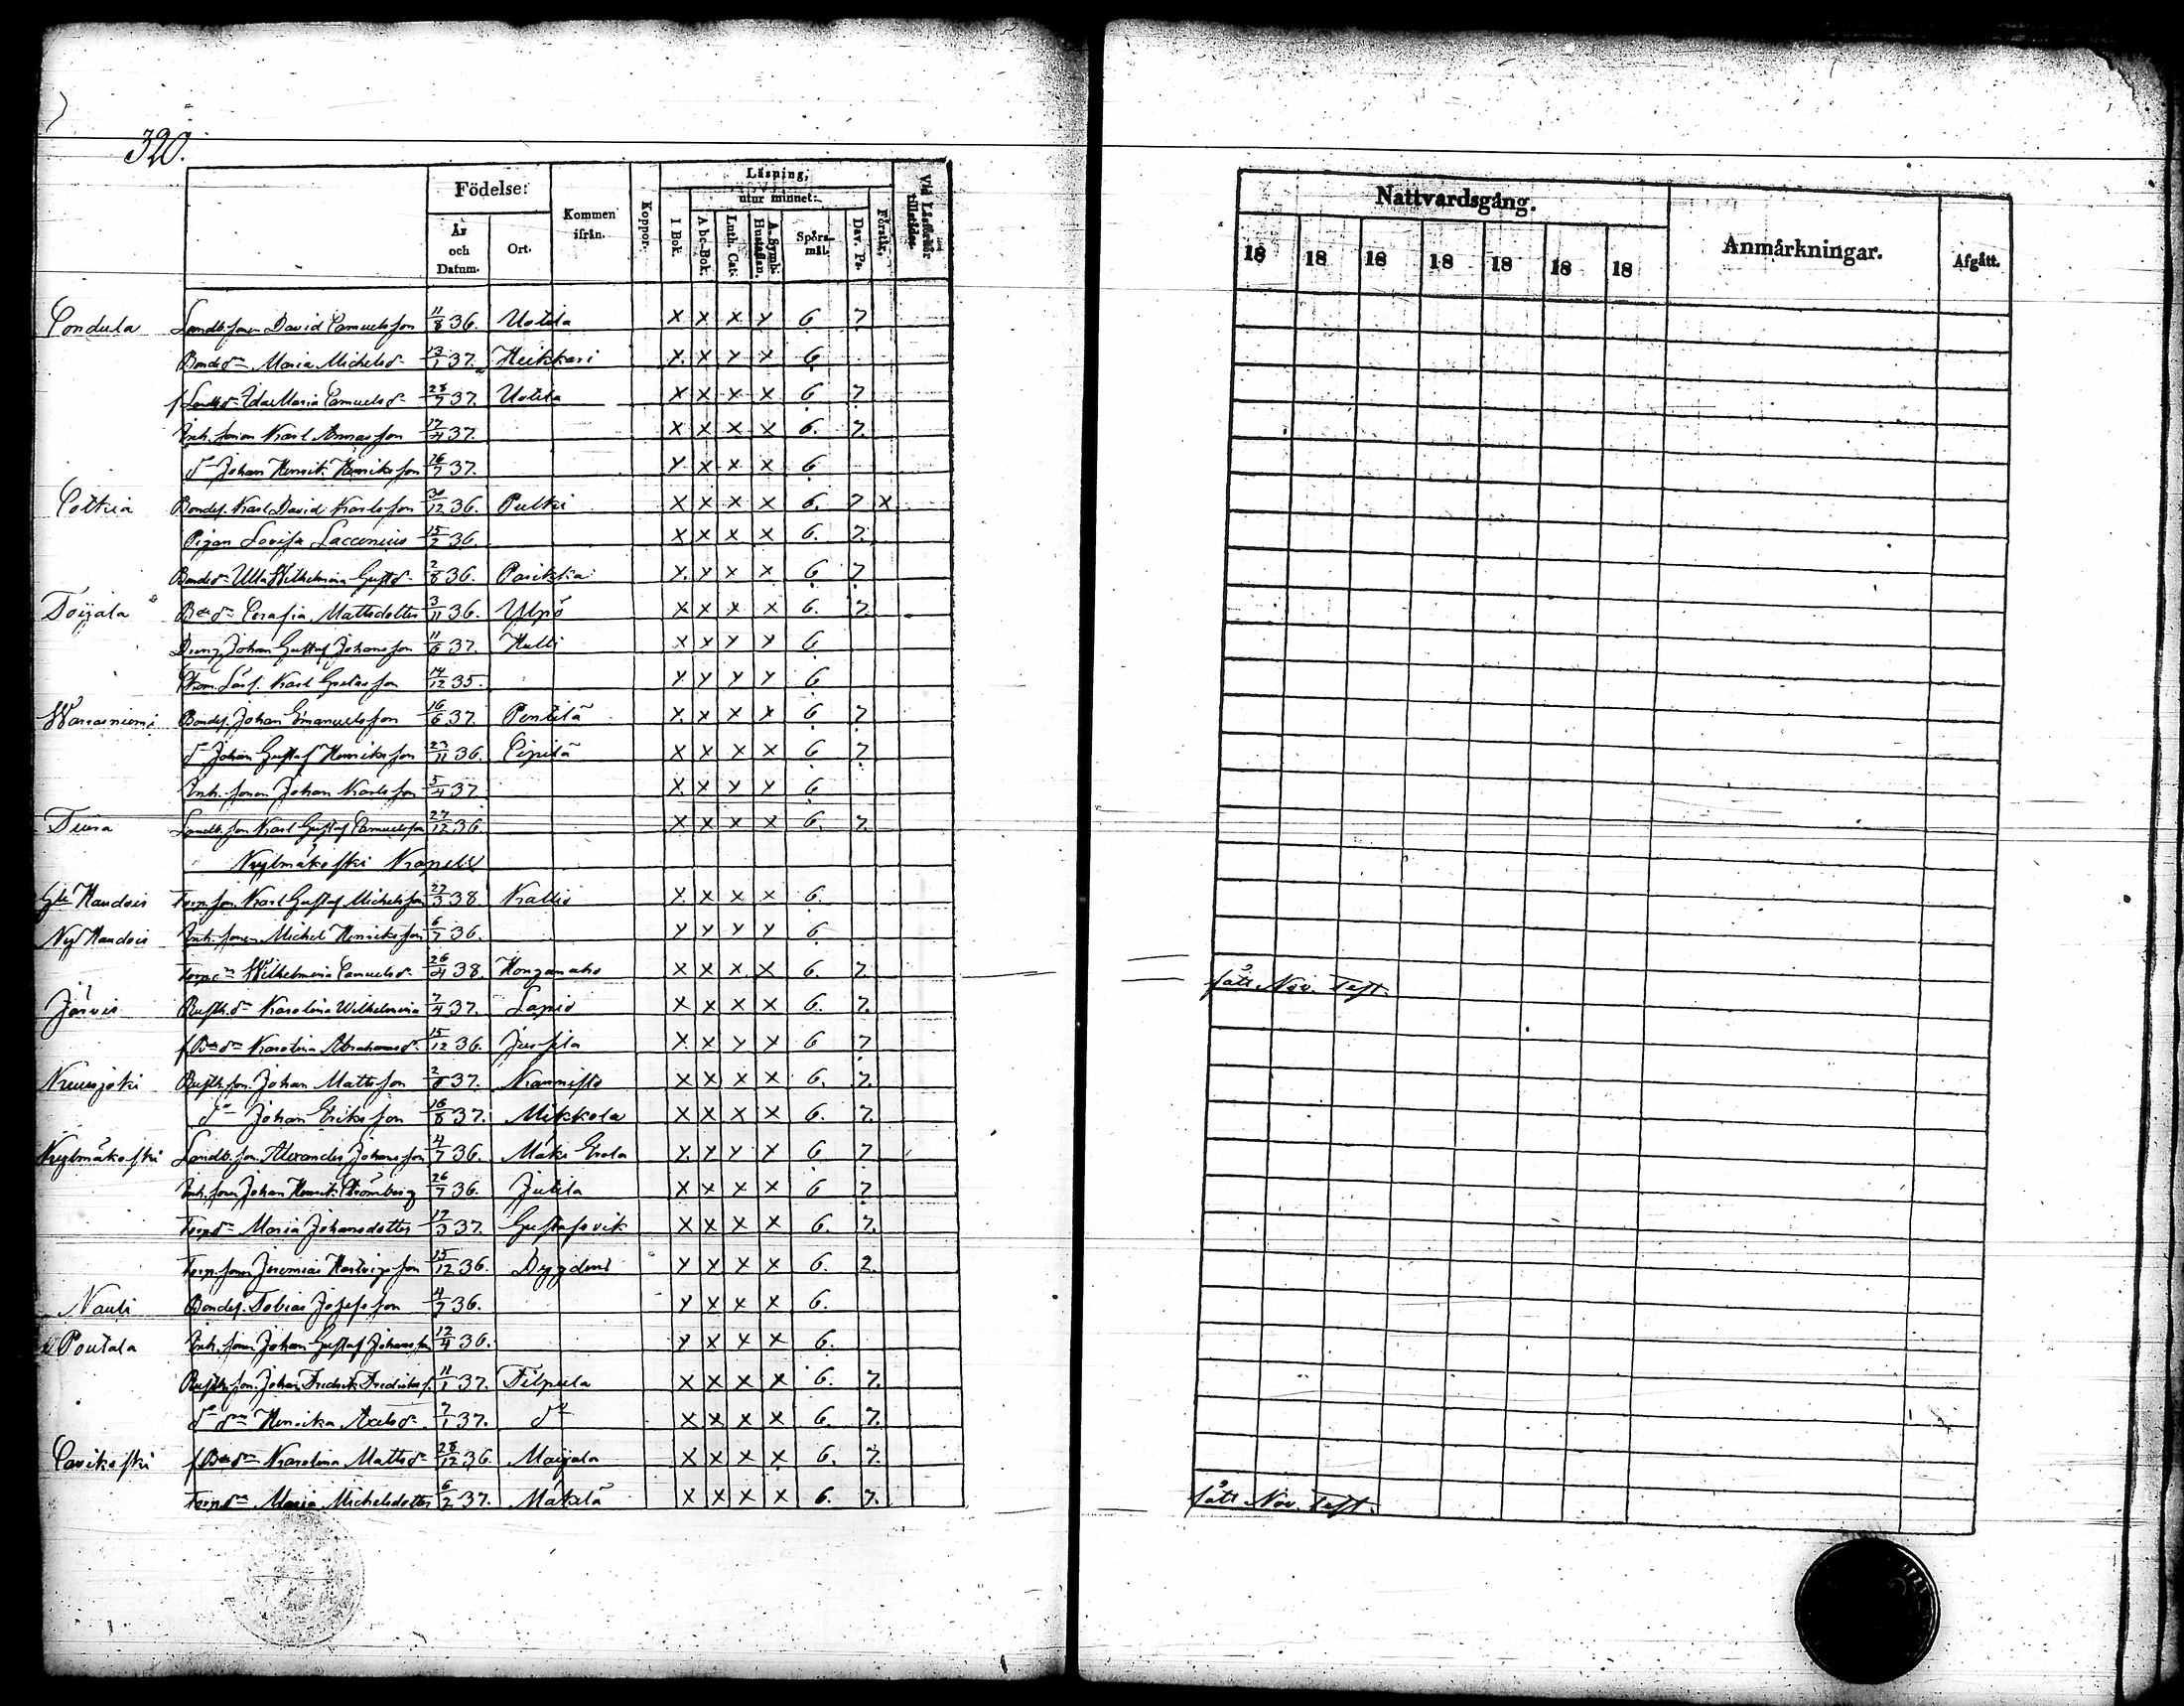 320.
Födelse:
Läsning,
utur minnet:
År och Datum.
Ort.
Kommen ifrån.
Koppor.
I Bok.
Abc-Bok.
Luth. Cat.
A. Symb. Hustaflan.
Spörsmål.
Dav. Ps.
Förstår.
Vid Läsförhör tillstädes.
Nattvardsgång.
18 18 18 18 18 18 18
Anmärkningar.
Afgått.
Sondula Landb. sonen David Samuelsson 11/8 36. Uotila x x x x 6 7
Bonded:n Maria Michelsd:r 13/1 37. Heikkari x x x x 6
f Landbd:n Ida Maria Samuelsd:r 28/7 37. Uotila x x x x 6 7
Inh. sonen Karl Annasson 17/4 37. x x x x 6. 7.
d:o Johan Henrik Henriksson 26/7 37. x x x x 6
Sottia Bondes. Karl David Karlsson 30/12 36. Pulkki x x x x 6. 7 x
Pigan Lovisa Laccenius 15/2 36. x x x x 6. 7.
Bonded:n Ulla Wilhelmina Gustd:r 2/8 36. Parikka x x x x 6 7
Toijala B:de d:n Serafia Mattsdotter 3/11 36. Ylpö x x x x 6. 7.
Dreng Johan Gustaf Johansson 11/6 37. Hulli x x x x 6
Karl Gustafsson 14/12 35. x x x x 6
Warrasniemi Bondes. Johan Emanuelsson 16/6 37. Pentilä x x x x 6 7
d:o Johan Gustaf Henriksson 27/11 36. Sipilä x x x x 6 7
Inh. sonen Johan Karlsson 5/4 37 x x x x 6
Tursa Landb. son Karl Gustaf Samuelsson 27/12 36 x x x x 6. 7.
Kylmäkoski Kapell
Gle Haudois Torp. son. Karl Gustaf Michelsson 27/3 38. Kallio x x x x 6.
Ny Haudois Inh. sonen Michel Henriksson 6/7 36. x x x x 6
Wilhelmina Samuelsd:r 26/4 38. Honganaho x x x x 6. 7 fått Nov. Test.
Järvis Rusth. d:n Karolina Wilhelmina 7/4 37. Lapio x x x x 6. 7.
f B:de d:n Karolina Abrahamsd:r 15/12 36. Jussila x x x x 6 7
Kuusjoki Rusth. son. Johan Mattsson 2/8 37. Krannisto x x x x 6. 7.
d:o Johan Eriksson 16/8 37. Mikkola x x x x 6. 7.
Kylmäkoski Landb. son. Alexander Johansson 4/7 36. Mäki Erola x x x x 6 7
Inh. sonen Johan Henrik Strömberg 26/7 36. Jutila x x x x 6 7
Torpd:n Maria Johansdotter 17/3 37. Gustafsvik x x x x 6. 7.
Torp. sonen Jeremias Hartvigsson 15/12 36. x x x x 6. 2.
Nauli Bondes. Tobias Josefsson 4/7 36. x x x x 6.
Poutala Inh. sonen Johan Gustaf Johansson 12/4 36. x x x x 6.
Rusth. son. Johan Fredrik Fredrikss. 11/1 37. Filpula x x x x 6. 7.
d:o d:n Henrika Axelsd:r 7/1 37. d:o x x x x 6. 7.
Savikoski f B:de d:n Karolina Mattsd:r 28/12 36. Maijala x x x x 6. 7.
Torpd:n Maria Michelsdotter 6/2 37. Mäkilä x x x x 6. 7. fått Nov. Test.